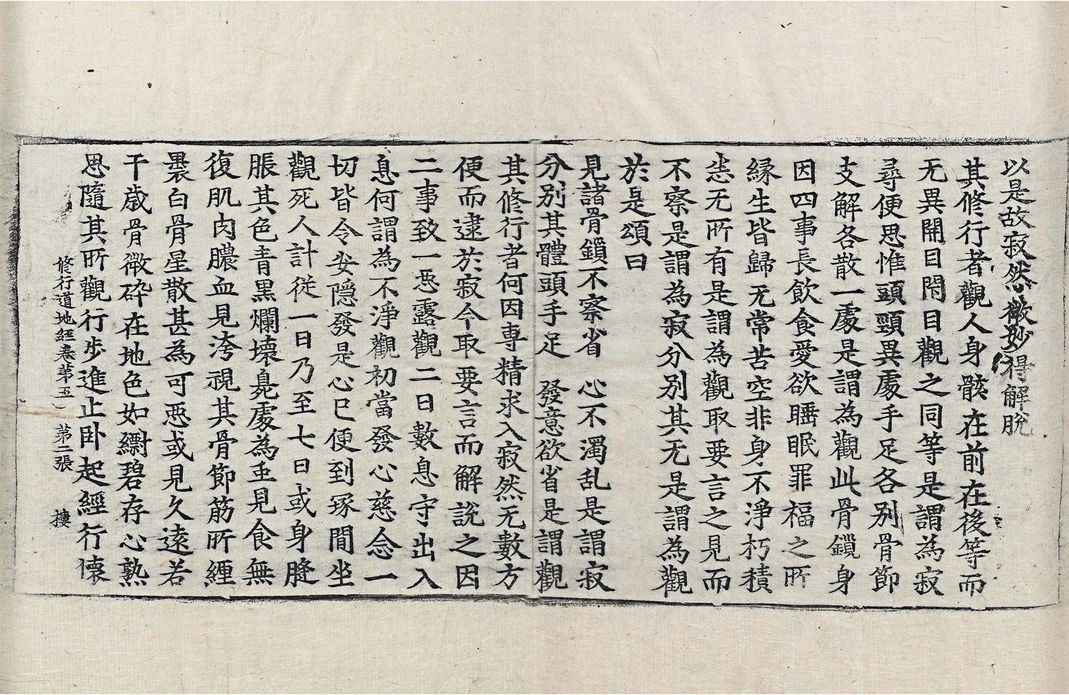 以是故寂然微妙得解脫
其修行者觀人身骸在前在後等而
无異開目閇目觀之同等是謂為寂
尋便思惟頭頸異處手足各別骨節
支解各散一處是謂為觀此骨鎖身
因四事長飲食愛欲睡眠罪福之所
緣生皆歸无常苦空非身不淨朽積
悉无所有是謂為觀取要言之見而
不察是謂為寂分別其无是謂為觀
於是頌曰
見諸骨鎖不察省 心不濁乱是謂寂
分別其體頭手足 發意欲省是謂觀
其修行者何因專精求入寂然无數方
便而逮於寂今取要言而解說之因
二事致一惡露觀二曰數息守出入
息何謂為不淨觀初當發心慈念一
切皆令安隱發是心已便到塚間坐
觀死人計從一日乃至七日或身膖
脹其色青黑爛壞臭處為虫見食無
復肌肉膿血見洿視其骨節筋所纏
褁白骨星散甚為可惡或見久遠若
干歲骨微碎在地色如縹碧存心熟
思隨其所觀行步進止臥起經行懷
修行道地經卷第五 第二張 摟